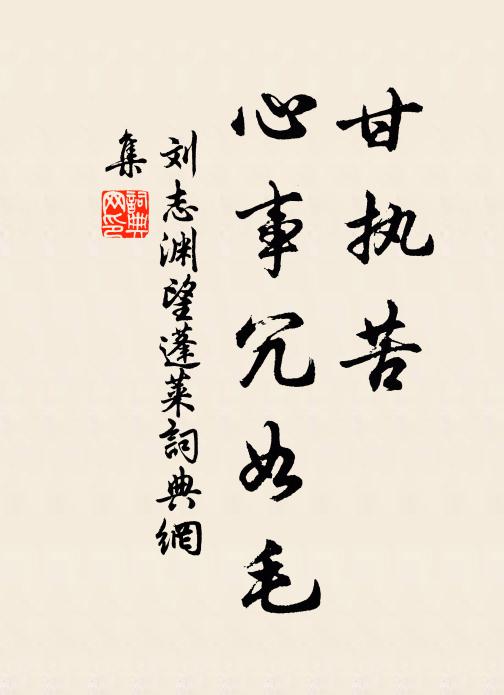 甘执苦
心事冗如毛
刘志渊望蓬莱詞典網
集
詞典网印